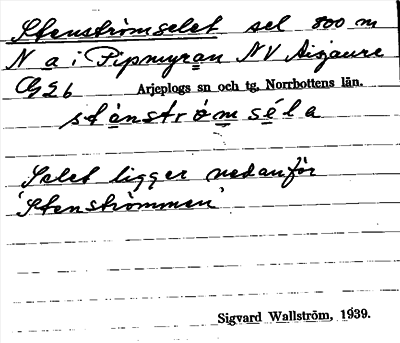 Stenströmselet sel 800 m
N a i Pipmyran NV Aisjaure
Arjeplogs sn och tg, Norrbottens län.
stenströmsela
Selet ligger nedanför
'Stenströmmen'
Sigvard Wallström, 1939.